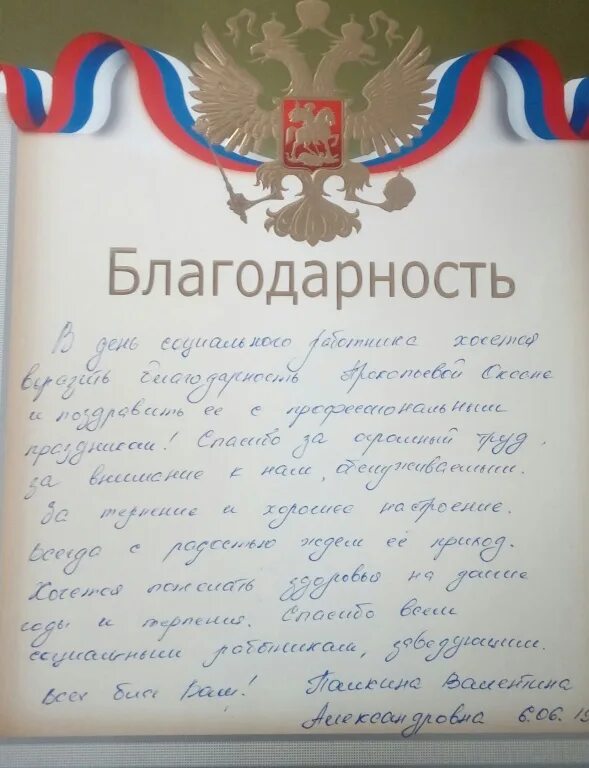 Благодарность
В день социального работника хочется
выразить благодарность Прокопьевой Оксане
и поздравить ее с профессиональным
праздником! Спасибо за огромный труд.
за внимание к нам, обслуживаемым.
За терпение и хорошее настроение.
Всегда с радостью ждем её приход.
Хочется пожелать здоровья на долгие
годы и терпения. Спасибо всем
социальным работникам, заведующим.
Всех благ Вам! Палкина Валентина
Александровна 6.06.19